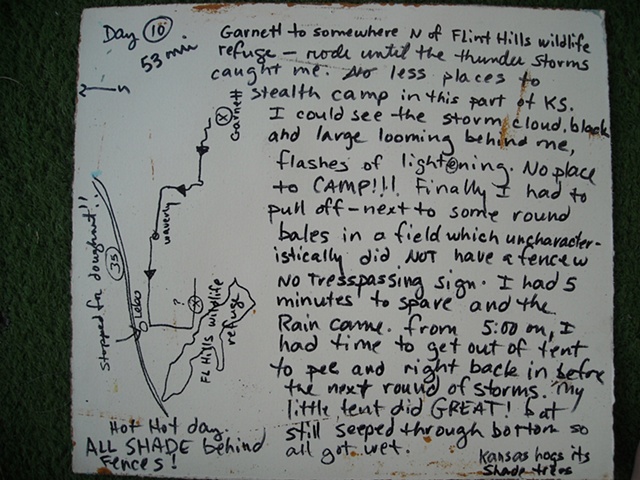 Day 10
53 min
Garnett to somewhere N of Flint Hills wildlife
refuge - rode until the thunder storms
caught me. No less places to
stealth camp in this part of KS.
I could see the storm cloud, black
and large looming behind me,
flashes of lightening. No place
to CAMP!!! Finally I had to
pull off - next to some round
bales in a field which uncharacter-
istically did NOT have a fence w
No Tresspassing sign. I had 5
minutes to spare and the
Rain came. from 5:00 on, I
had time to get out of tent
to pee and right back in before
the next round of storms. My
little tent did GREAT! but
still seeped through bottom so
all got wet.
Kansas hogs its
Shade trees
N S
X
Garnett
waverly
Stopped for doughnut!!
35
Lebo
?
X
Fl Hills wildlife
refuge
Hot Hot day.
ALL SHADE behind
Fences!